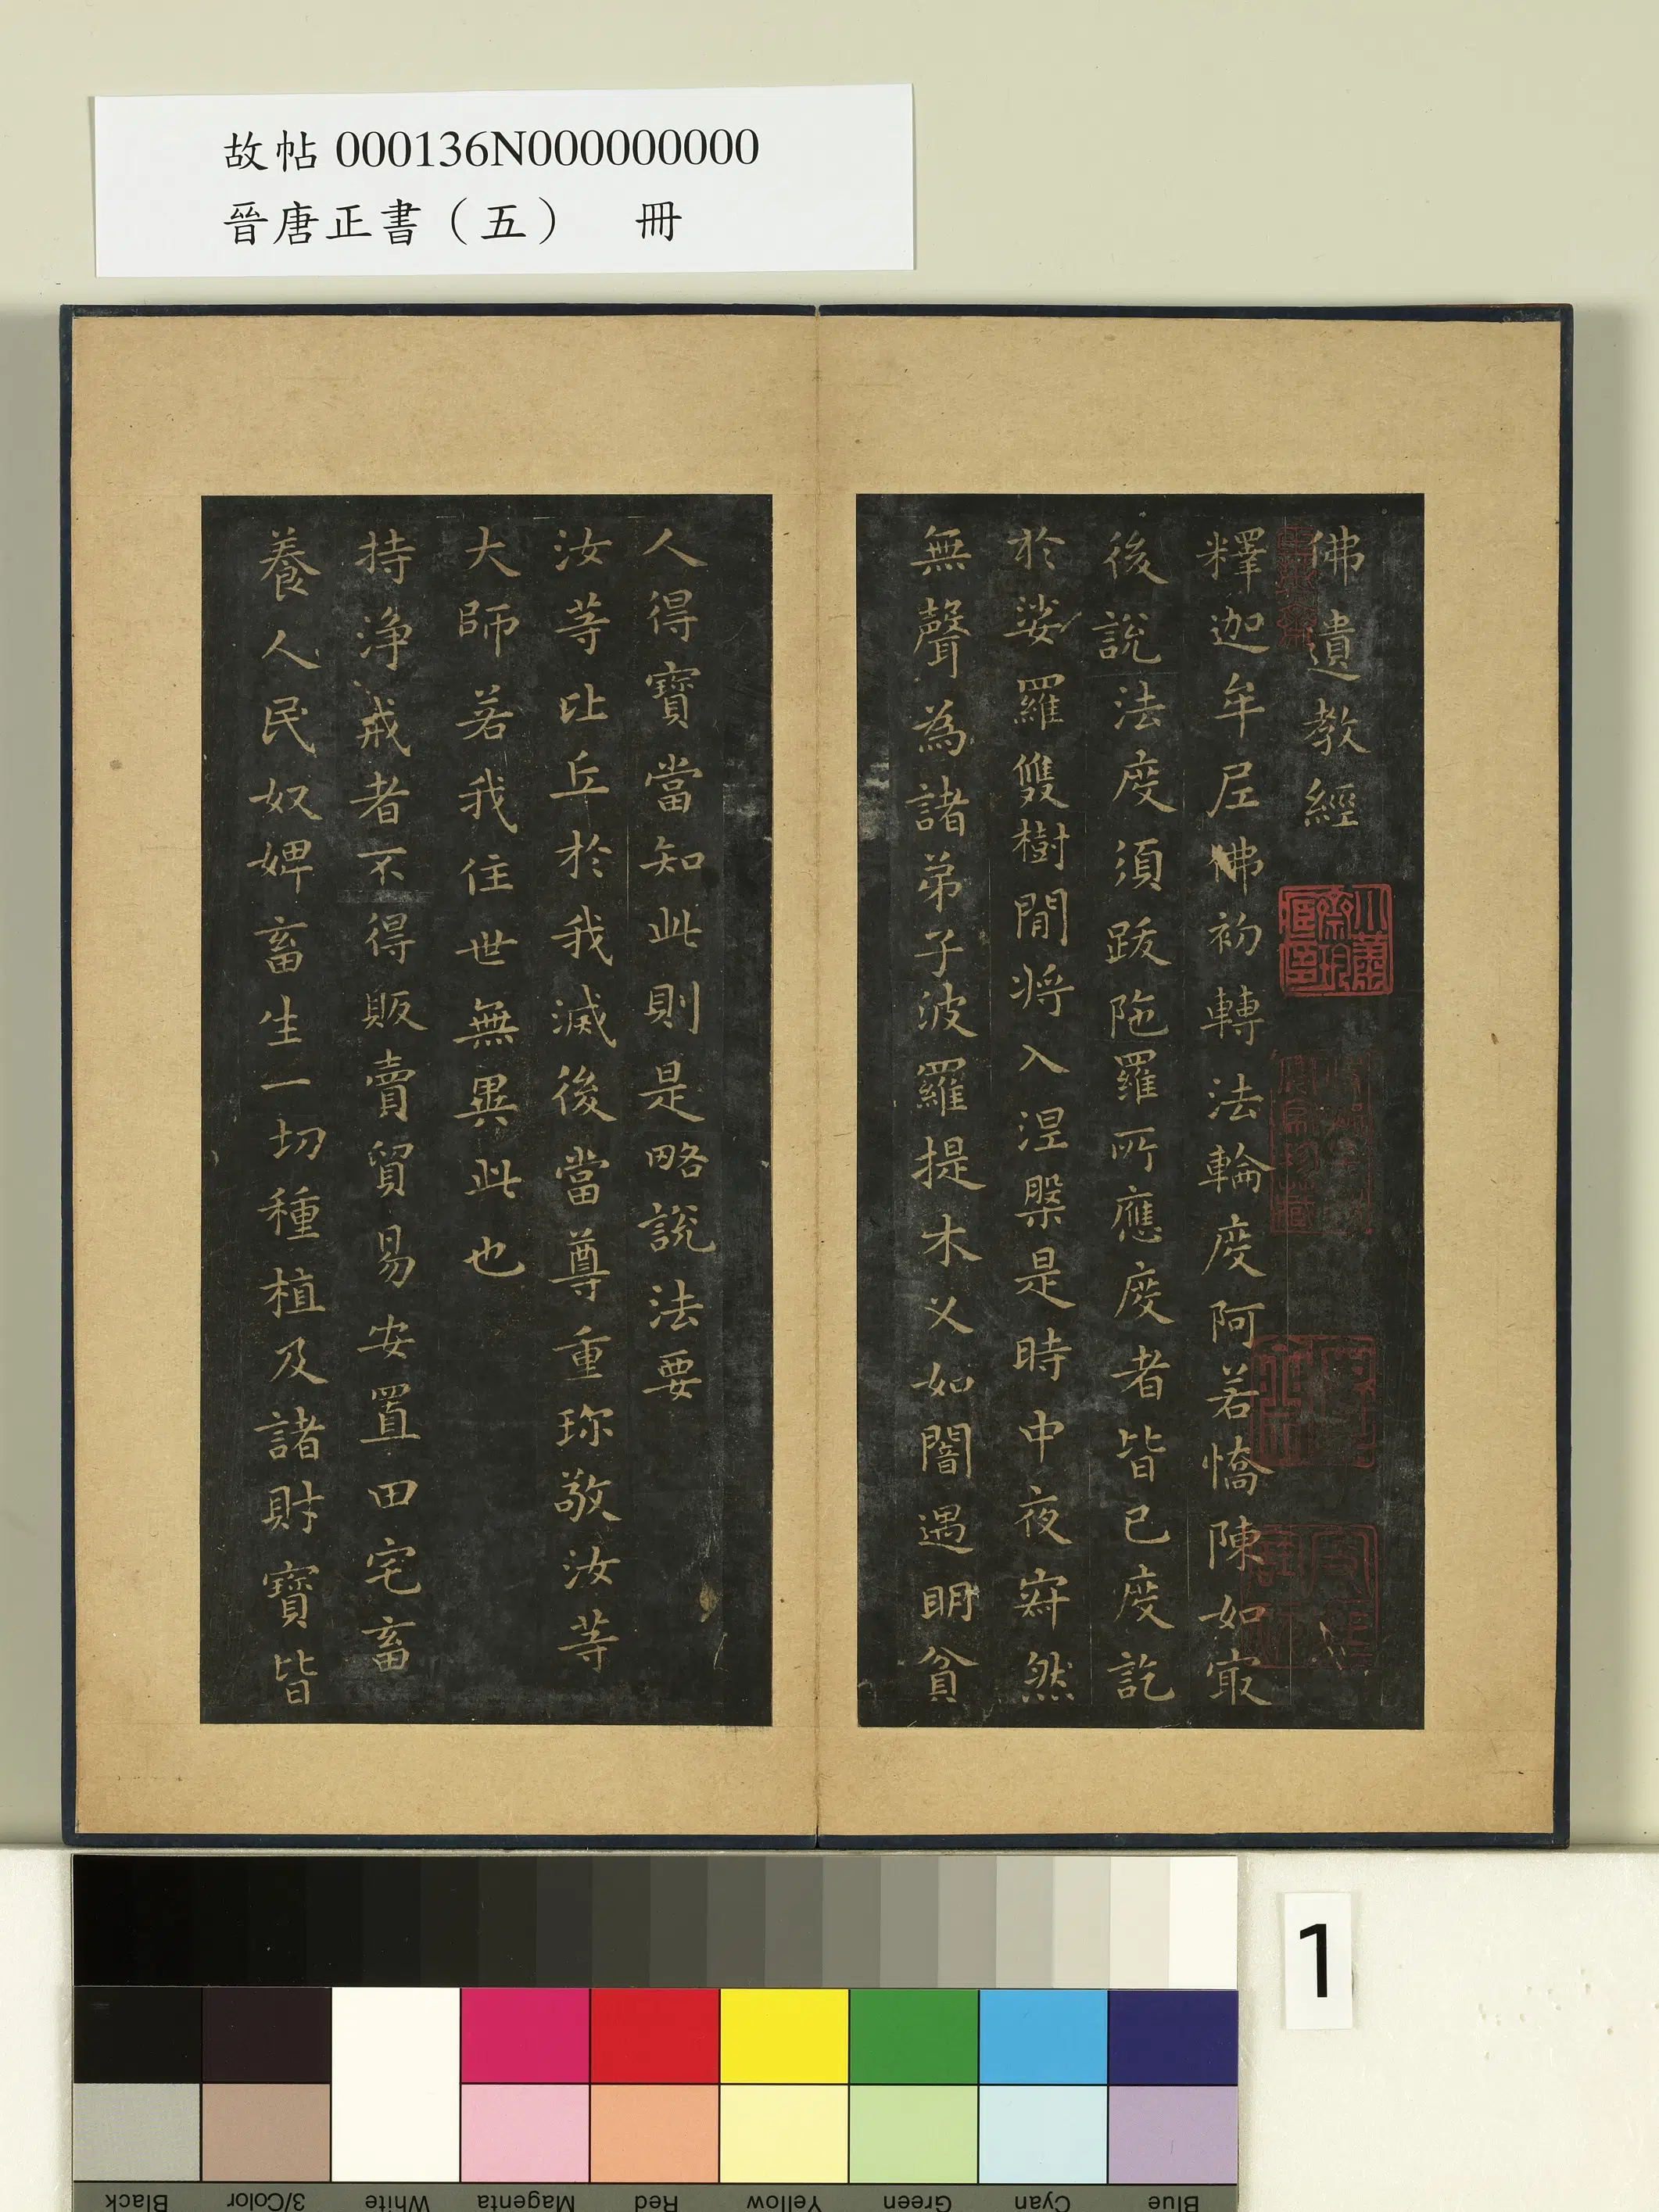 故帖 000136N000000000
晉唐正書（五） 冊
佛遺教經
釋迦牟尼佛初轉法輪度阿若憍陳如㝡
後說法度須跋陁羅所應度者皆已度訖
於娑羅雙樹間将入涅槃是時中夜㝥然
無聲為諸弟子波羅提木乂如闇遇明貧
人得寶當知此則是略說法要
汝等比丘於我滅後當尊重珎敬汝等
大師若我住世無異此也
持淨戒者不得販賣貿易安置田宅畜
養人民奴婢畜生一切種植及諸財寶皆
小蕭齋珎㽵印
1
Black
3/Color
White
Magenta
Red
Yellow
Green
Cyan
Blue